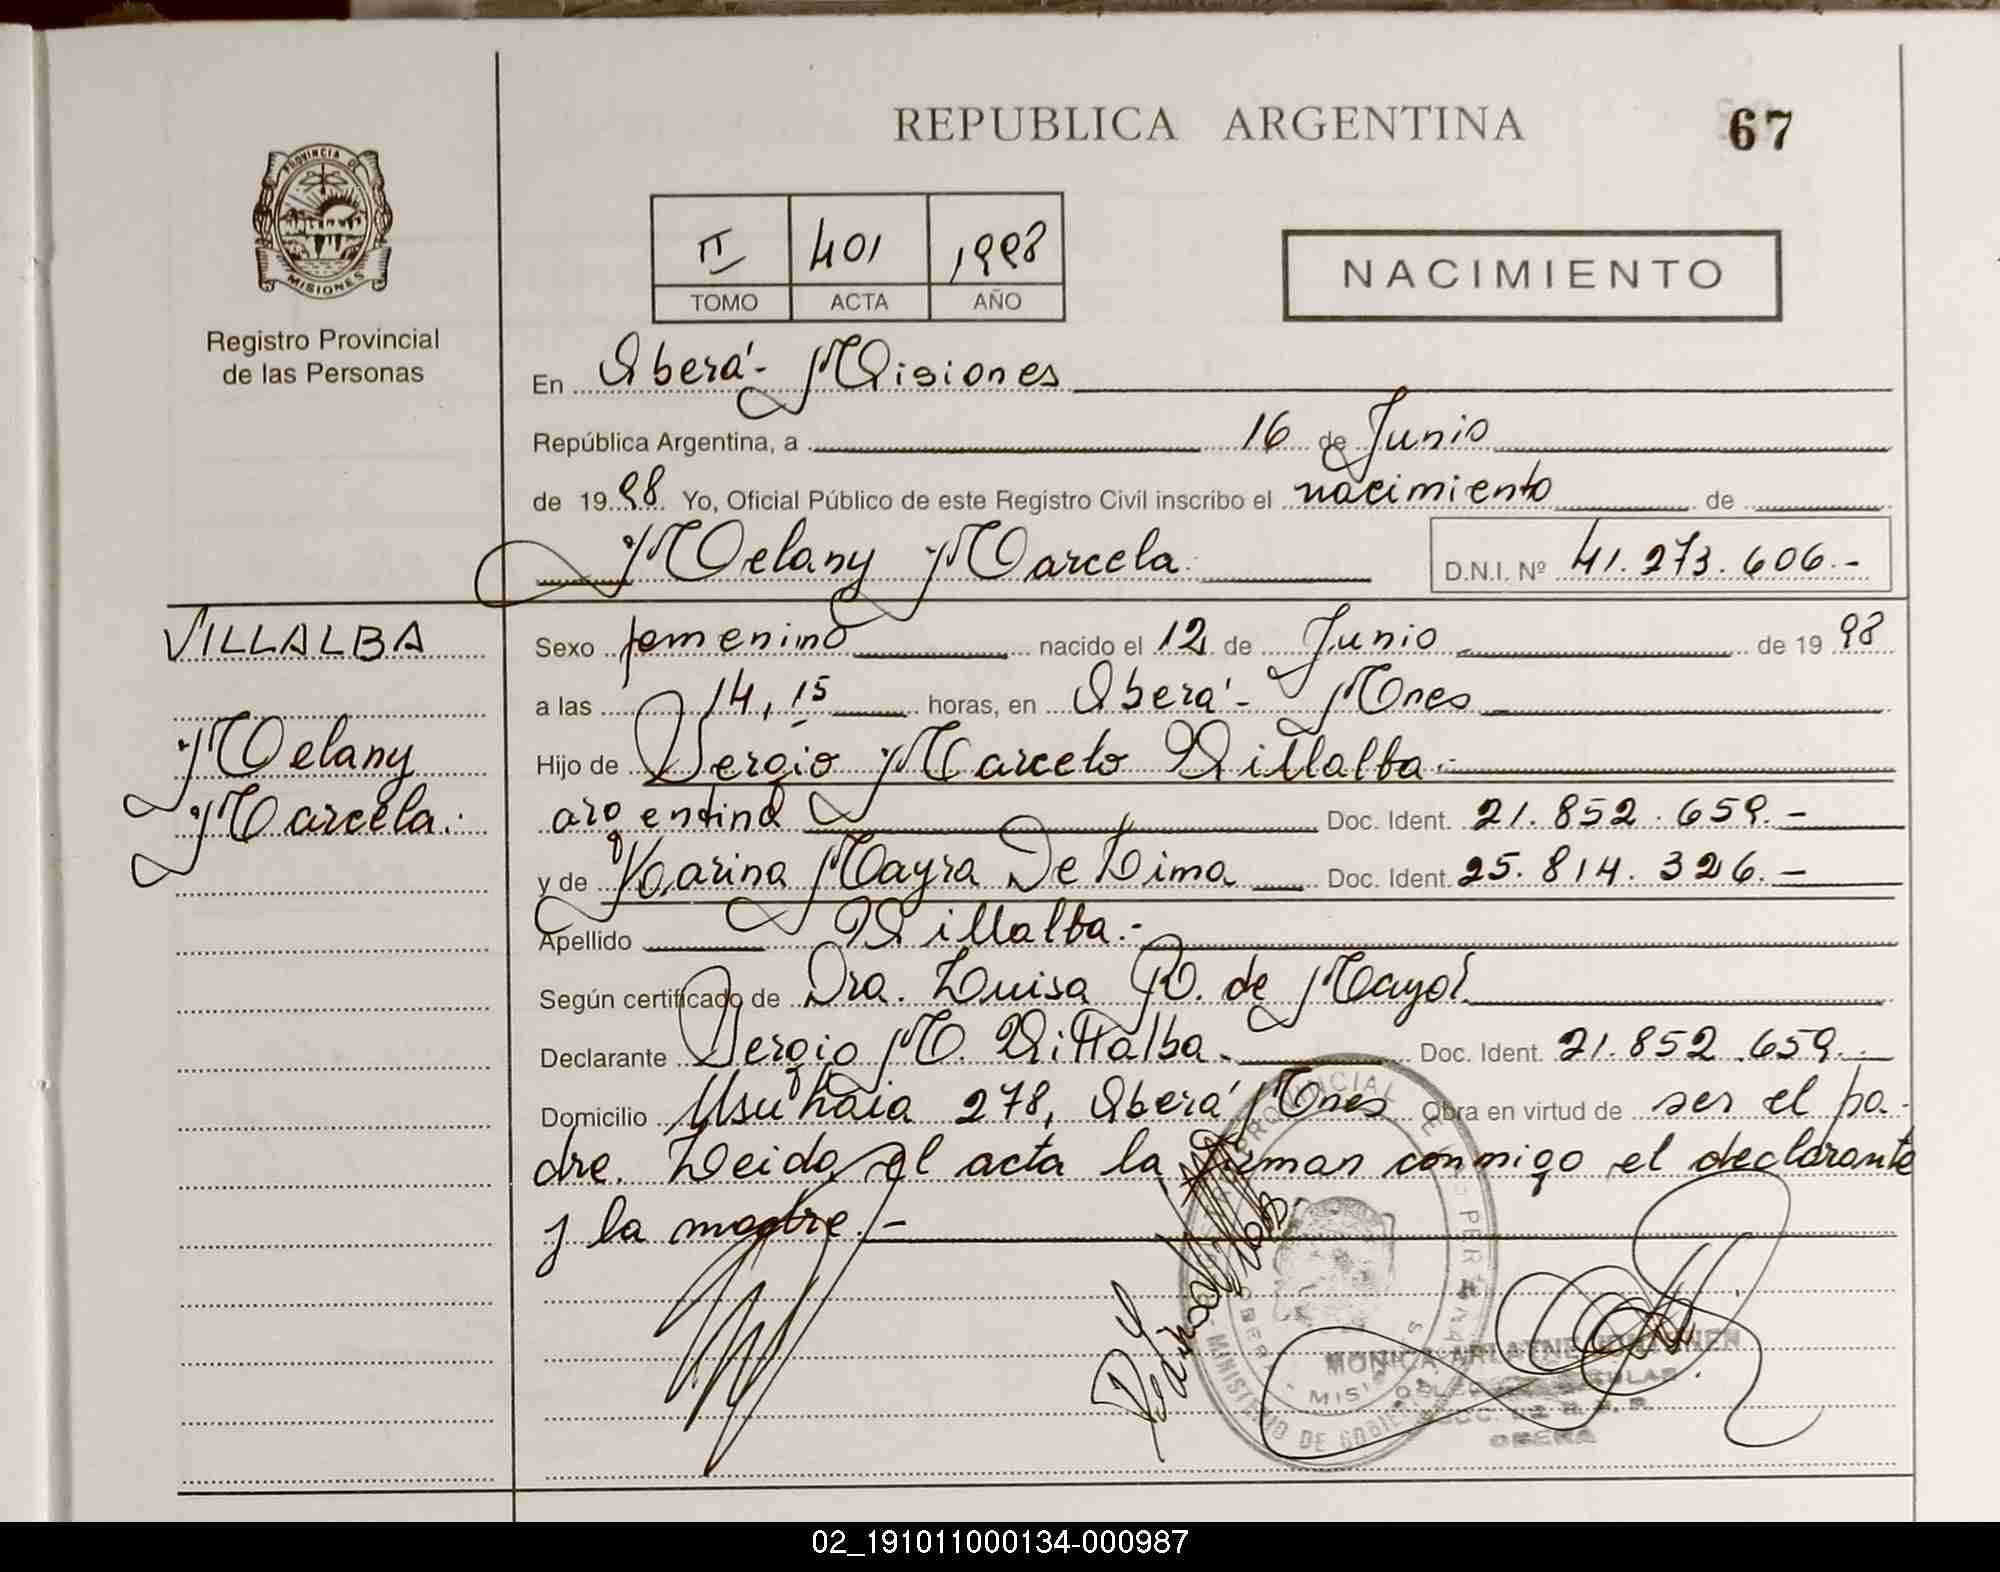 REPUBLICA ARGENTINA
67
PROVINCIA DE
MISIONES
Registro Provincial
de las Personas
II 401 1998
TOMO ACTA AÑO
NACIMIENTO
En Oberá - Misiones
República Argentina, a 16 de Junio
de 19 98 Yo, Oficial Público de este Registro Civil inscribo el nacimiento de
Melany Marcela D.N.I. Nº 41.273.606.-
VILLALBA
Melany
Marcela.
Sexo femenino nacido el 12 de Junio de 19 98
a las 14,15 horas, en Oberá - Mnes
Hijo de Sergio Marcelo Villalba.-
argentino Doc. Ident. 21.852.659.-
y de Karina Mayra De Lima Doc. Ident. 25.814.326.-
Apellido Villalba.-
Según certificado de Dra. Luisa P. de Mayol
Declarante Sergio M. Villalba. Doc. Ident. 21.852.659.-
Domicilio Usuhaia 278, Oberá Mnes Obra en virtud de ser el pa-
dre. Leida el acta la firman conmigo el declarante
y la madre.-
MINISTERIO DE GOBIERNO
MISIONES
MONICA ARLAENE
OBERA
02_191011000134-000987